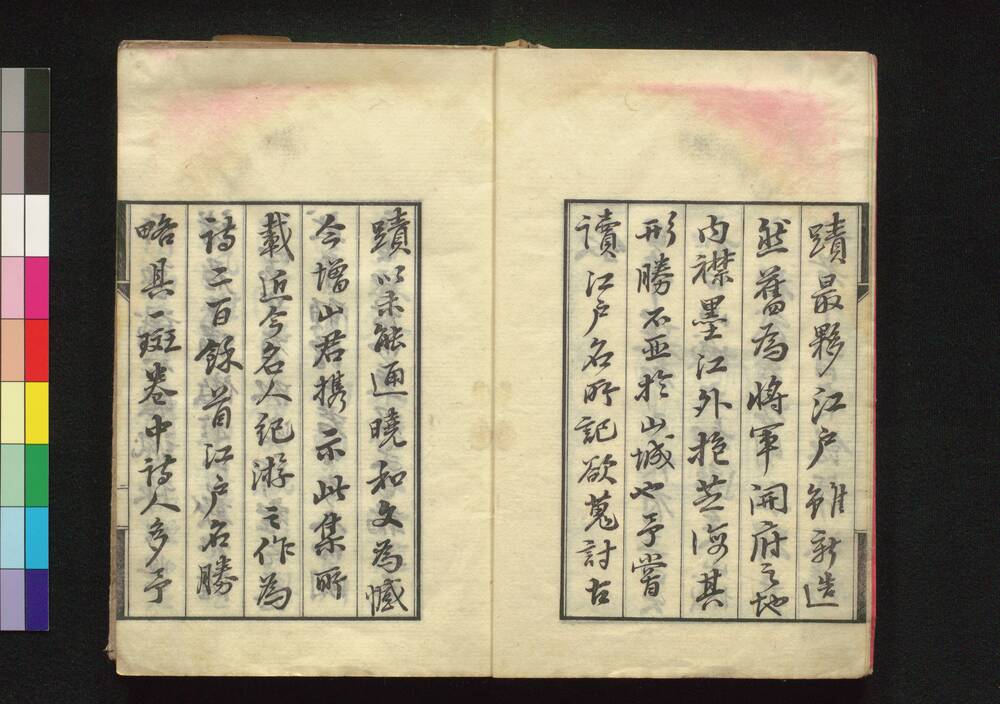 蹟最夥江戸雖新造
然舊為將軍開府之地
内襟墨江外抱芝海其
形勝不亜於山城也予嘗
讀江戸名所記欲蒐討古
蹟以未能通曉和文為憾
今增山君携示此集所
載近今名人記游之作為
詩二百餘首江戸名勝
略具一斑巻中詩人多予